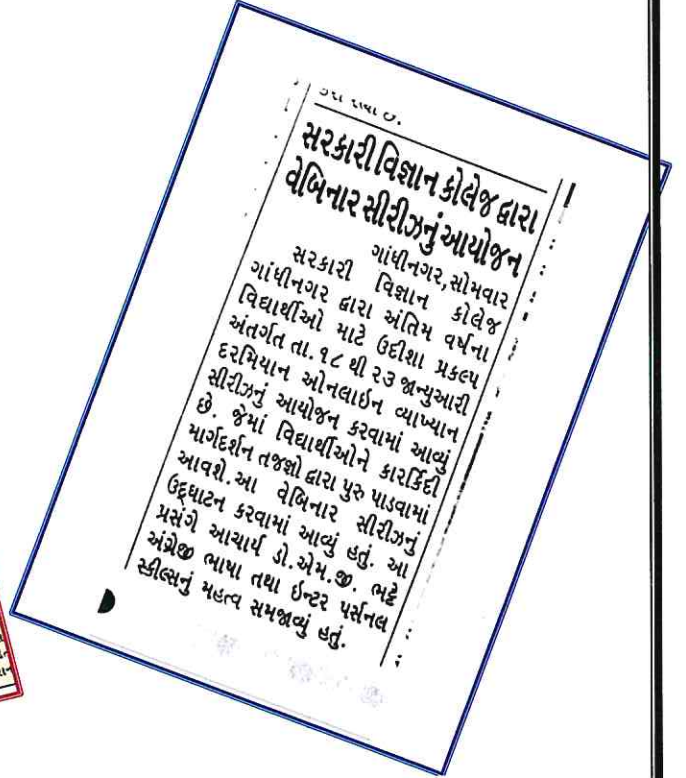 સરકારી વિજ્ઞાન કોલેજ દ્વારા
વેબિનાર સીરીઝનું આયોજન
ગાંધીનગર,સોમવાર
સરકારી વિજ્ઞાન કોલેજ
ગાંધીનગર દ્વારા અંતિમ વર્ષના
વિદ્યાર્થીઓ માટે ઉદીશા પ્રકલ્પ
અંતર્ગત તા. ૧૮ થી ૨૩ જાન્યુઆરી
દરમિયાન ઓનલાઇન વ્યાખ્યાન
સીરીઝનું આયોજન કરવામાં આવ્યું
છે. જેમાં વિદ્યાર્થીઓને કારર્કિદી
માર્ગદર્શન તજજ્ઞો દ્વારા પુરુ પાડવામાં
આવશે.આ વેબિનાર સીરીઝનું
ઉદ્ઘાટન કરવામાં આવ્યું હતું. આ
પ્રસંગે આચાર્ય ડો.એમ.જી. ભટ્ટે
અંગ્રેજી ભાષા તથા ઇન્ટર પર્સનલ
સ્કીલ્સનું મહત્વ સમજાવ્યું હતું.